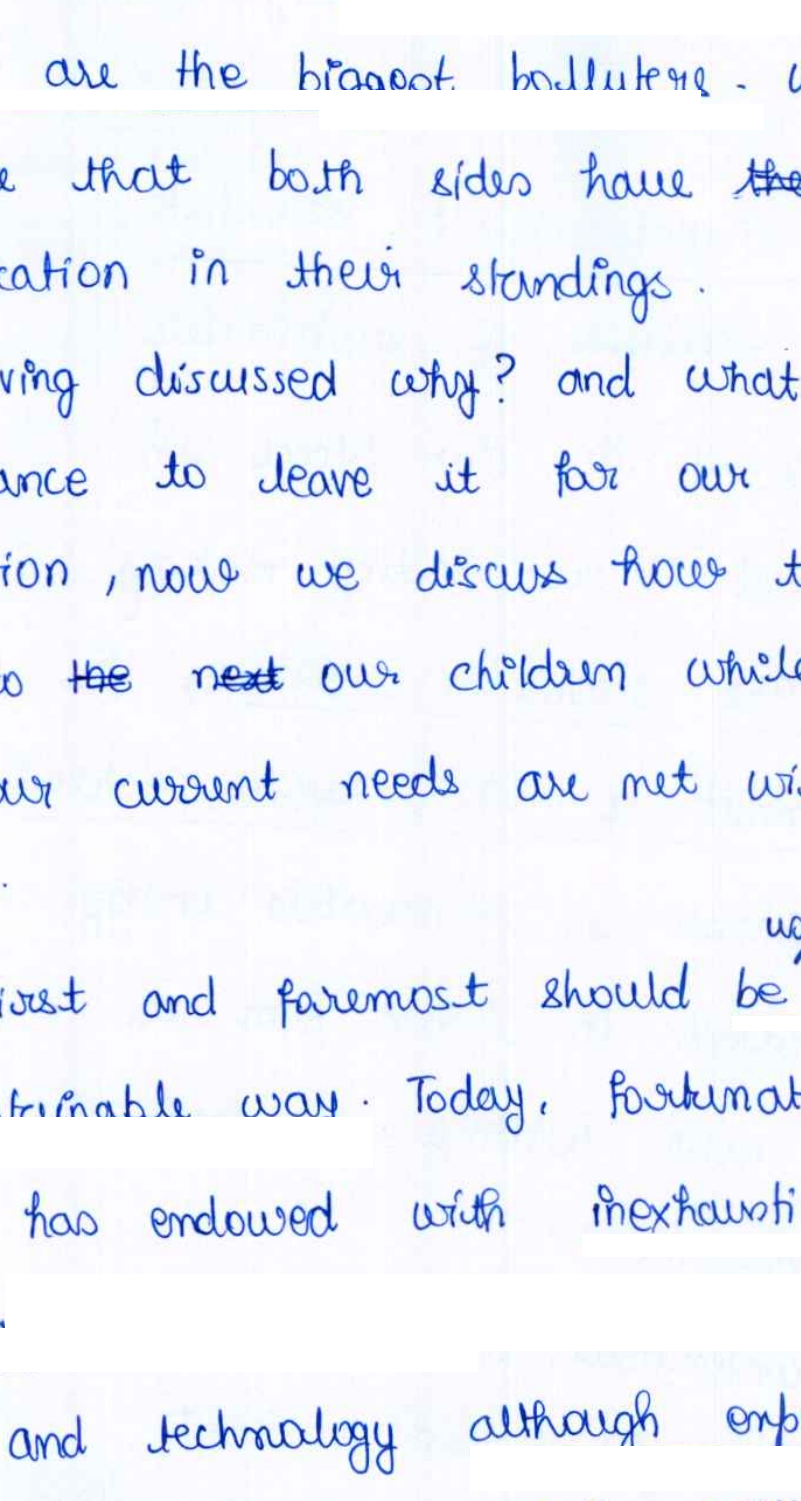 are the biggest polluters.
e that both sides have the
cation in their standings.
ving discussed why? and what
ance to leave it for our
ion, now we discus how t
o the next our children while
ur current needs are met wis
.
irst and foremost should be
tainable way. Today, fortunat
has endowed with inexhausti
and technology although emp